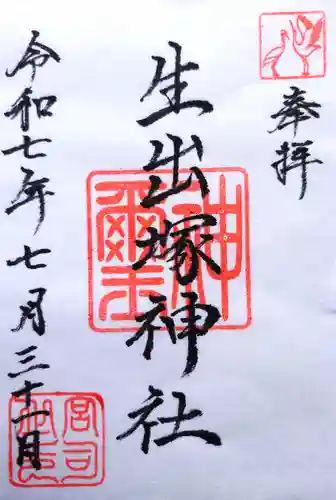 奉拝
生出塚神社
神璽
令和七年七月三十一日
宮司